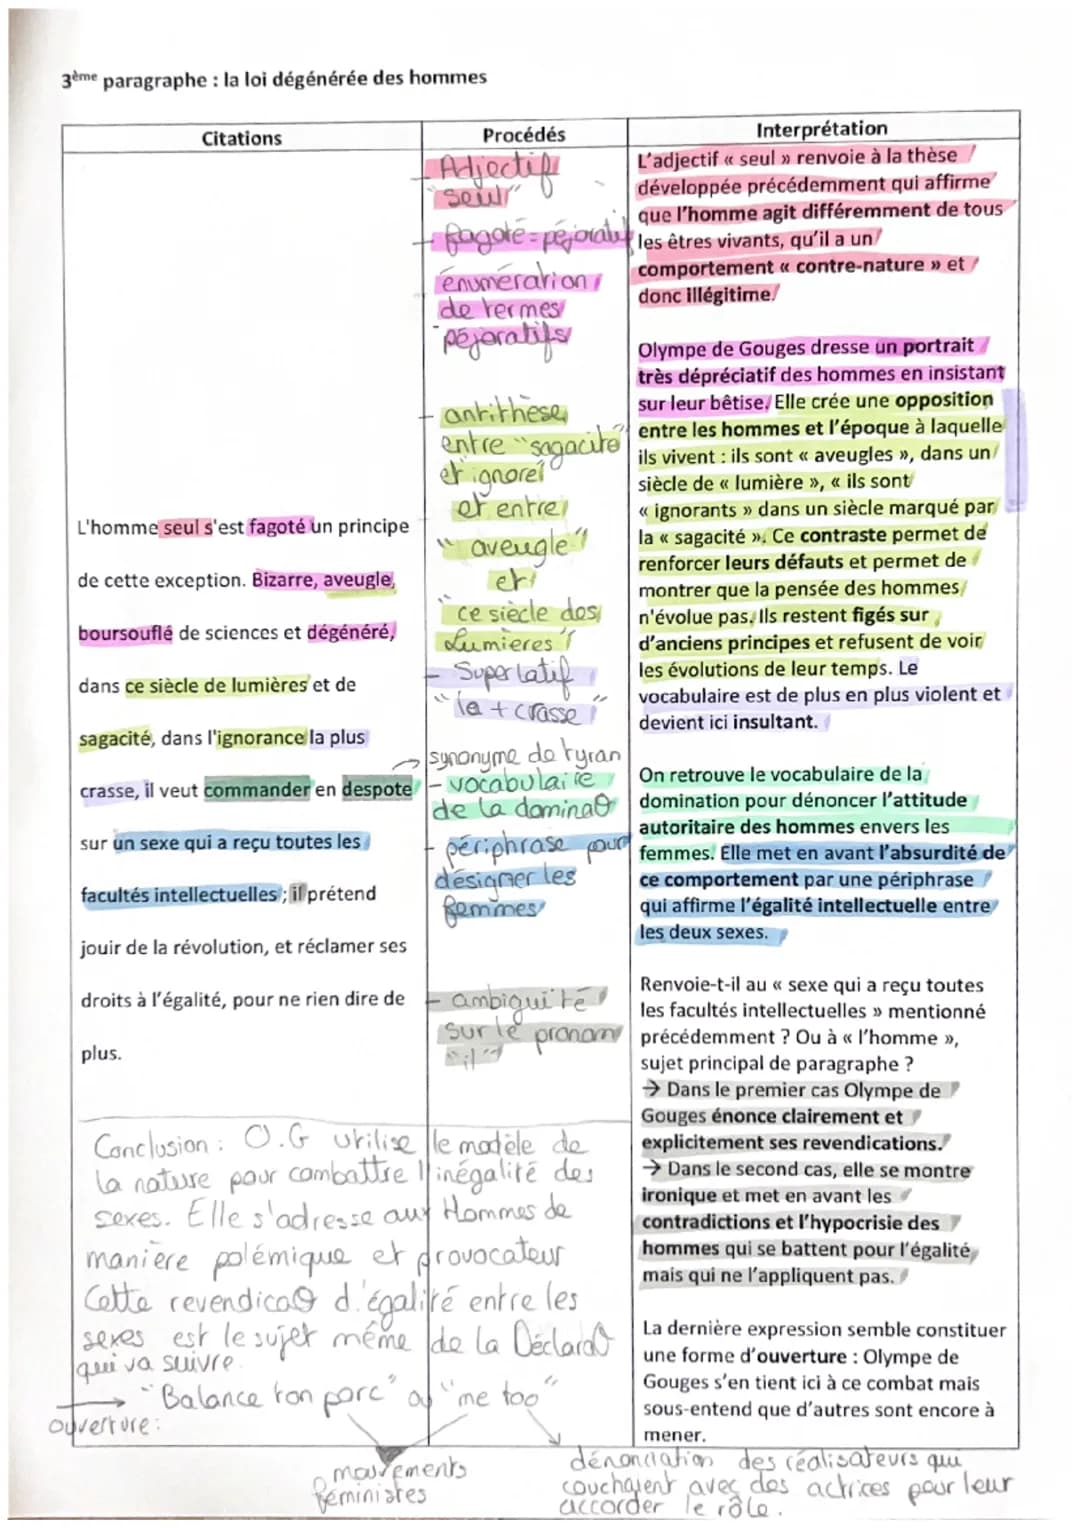 3ème paragraphe : la loi dégénérée des hommes
Citations
L'homme seul s'est fagoté un principe
de cette exception. Bizarre, aveugle,
boursouflé de sciences et dégénéré,
dans ce siècle de lumières et de
sagacité, dans l'ignorance la plus
crasse, il veut commander en despote
sur un sexe qui a reçu toutes les
facultés intellectuelles ; il prétend
jouir de la révolution, et réclamer ses
droits à l'égalité, pour ne rien dire de
plus.
Procédés
- Adjectif
"seul"
- fagoté = péjoratif
énumération
de termes
péjoratifs
- antithèse
entre "sagacité"
et ignore
et entre
"aveugle"
et
"ce siècle des
Lumières"
- Superlatif
"la + crasse"
→ synonyme de tyran
- vocabulaire
de la domina⁰
- périphrase pour
désigner les
femmes
- ambiguité
sur le pronom
"il"
Interprétation
L'adjectif « seul » renvoie à la thèse
développée précédemment qui affirme
que l'homme agit différemment de tous
les êtres vivants, qu'il a un
comportement « contre-nature » et
donc illégitime.
Olympe de Gouges dresse un portrait
très dépréciatif des hommes en insistant
sur leur bêtise. Elle crée une opposition
entre les hommes et l'époque à laquelle
ils vivent : ils sont « aveugles », dans un
siècle de « lumière », « ils sont
« ignorants » dans un siècle marqué par
la « sagacité ». Ce contraste permet de
renforcer leurs défauts et permet de
montrer que la pensée des hommes
n'évolue pas. Ils restent figés sur
d'anciens principes et refusent de voir
les évolutions de leur temps. Le
vocabulaire est de plus en plus violent et
devient ici insultant.
On retrouve le vocabulaire de la
domination pour dénoncer l'attitude
autoritaire des hommes envers les
femmes. Elle met en avant l'absurdité de
ce comportement par une périphrase
qui affirme l'égalité intellectuelle entre
les deux sexes.
Renvoie-t-il au « sexe qui a reçu toutes
les facultés intellectuelles » mentionné
précédemment ? Ou à « l'homme »,
sujet principal de paragraphe ?
→ Dans le premier cas Olympe de
Gouges énonce clairement et
explicitement ses revendications.
→ Dans le second cas, elle se montre
ironique et met en avant les
contradictions et l'hypocrisie des
hommes qui se battent pour l'égalité,
mais qui ne l'appliquent pas.
La dernière expression semble constituer
une forme d'ouverture : Olympe de
Gouges s'en tient ici à ce combat mais
sous-entend que d'autres sont encore à
mener.
Conclusion : O.G utilise le modèle de
la nature pour combattre l'inégalité des
sexes. Elle s'adresse aux Hommes de
manière polémique et provocateur
Cette revendica⁰ d'égalité entre les
sexes est le sujet même de la Déclara⁰
qui va suivre.
→ "Balance ton porc" ou "me too"
ouverture:
mouvements
féministes
dénonciation des réalisateurs qui
couchaient avec des actrices pour leur
accorder le rôle.